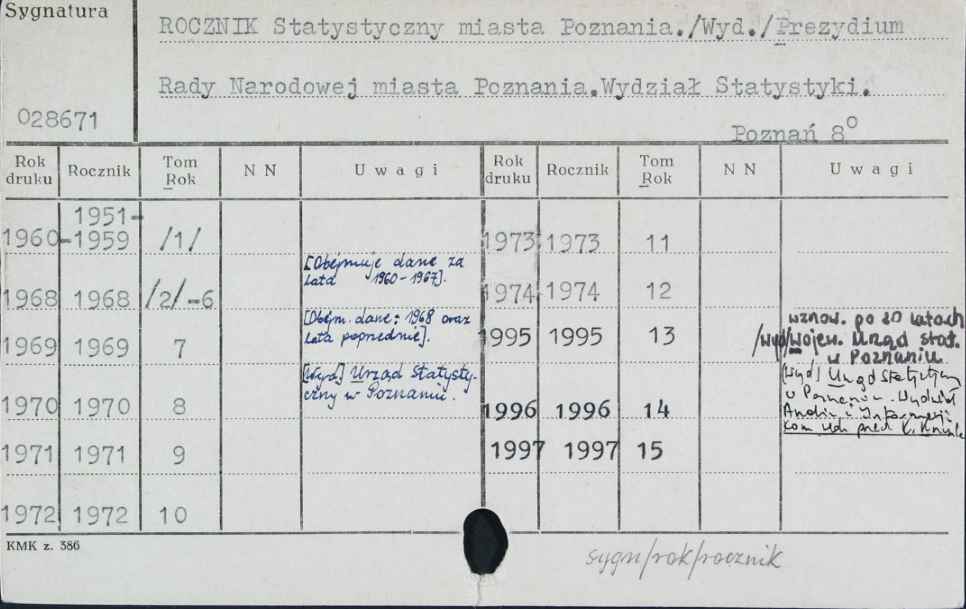 Sygnatura
ROCZNIK Statystyczny miasta Poznania./Wyd./Prezydium
Rady Narodowej miasta Poznania.Wydział Statystyki.
028671
Poznań 8°
Rok druku Rocznik Tom Rok N N U w a g i Rok druku Rocznik Tom Rok N N U w a g i
1951-
1960-1959 /1/ 1973 1973 11
[Obejmuje dane za
lata 1960-1967].
1968 1968 /2/-6 1974 1974 12
[Obejm. dane: 1968 oraz
lata poprzednie].
1969 1969 7 1995 1995 13
wznow. po 20 latach
/wyd/Wojew. Urząd Stat.
w Poznaniu.
[Wyd] Urząd Statysty-
czny w Poznaniu.
1970 1970 8 1996 1996 14
[Wyd] Urząd Statystyczny
w Poznaniu. Wydział
Analiz i Informacji
1971 1971 9 1997 1997 15
1972 1972 10
KMK z. 386
sygn/rok/rocznik